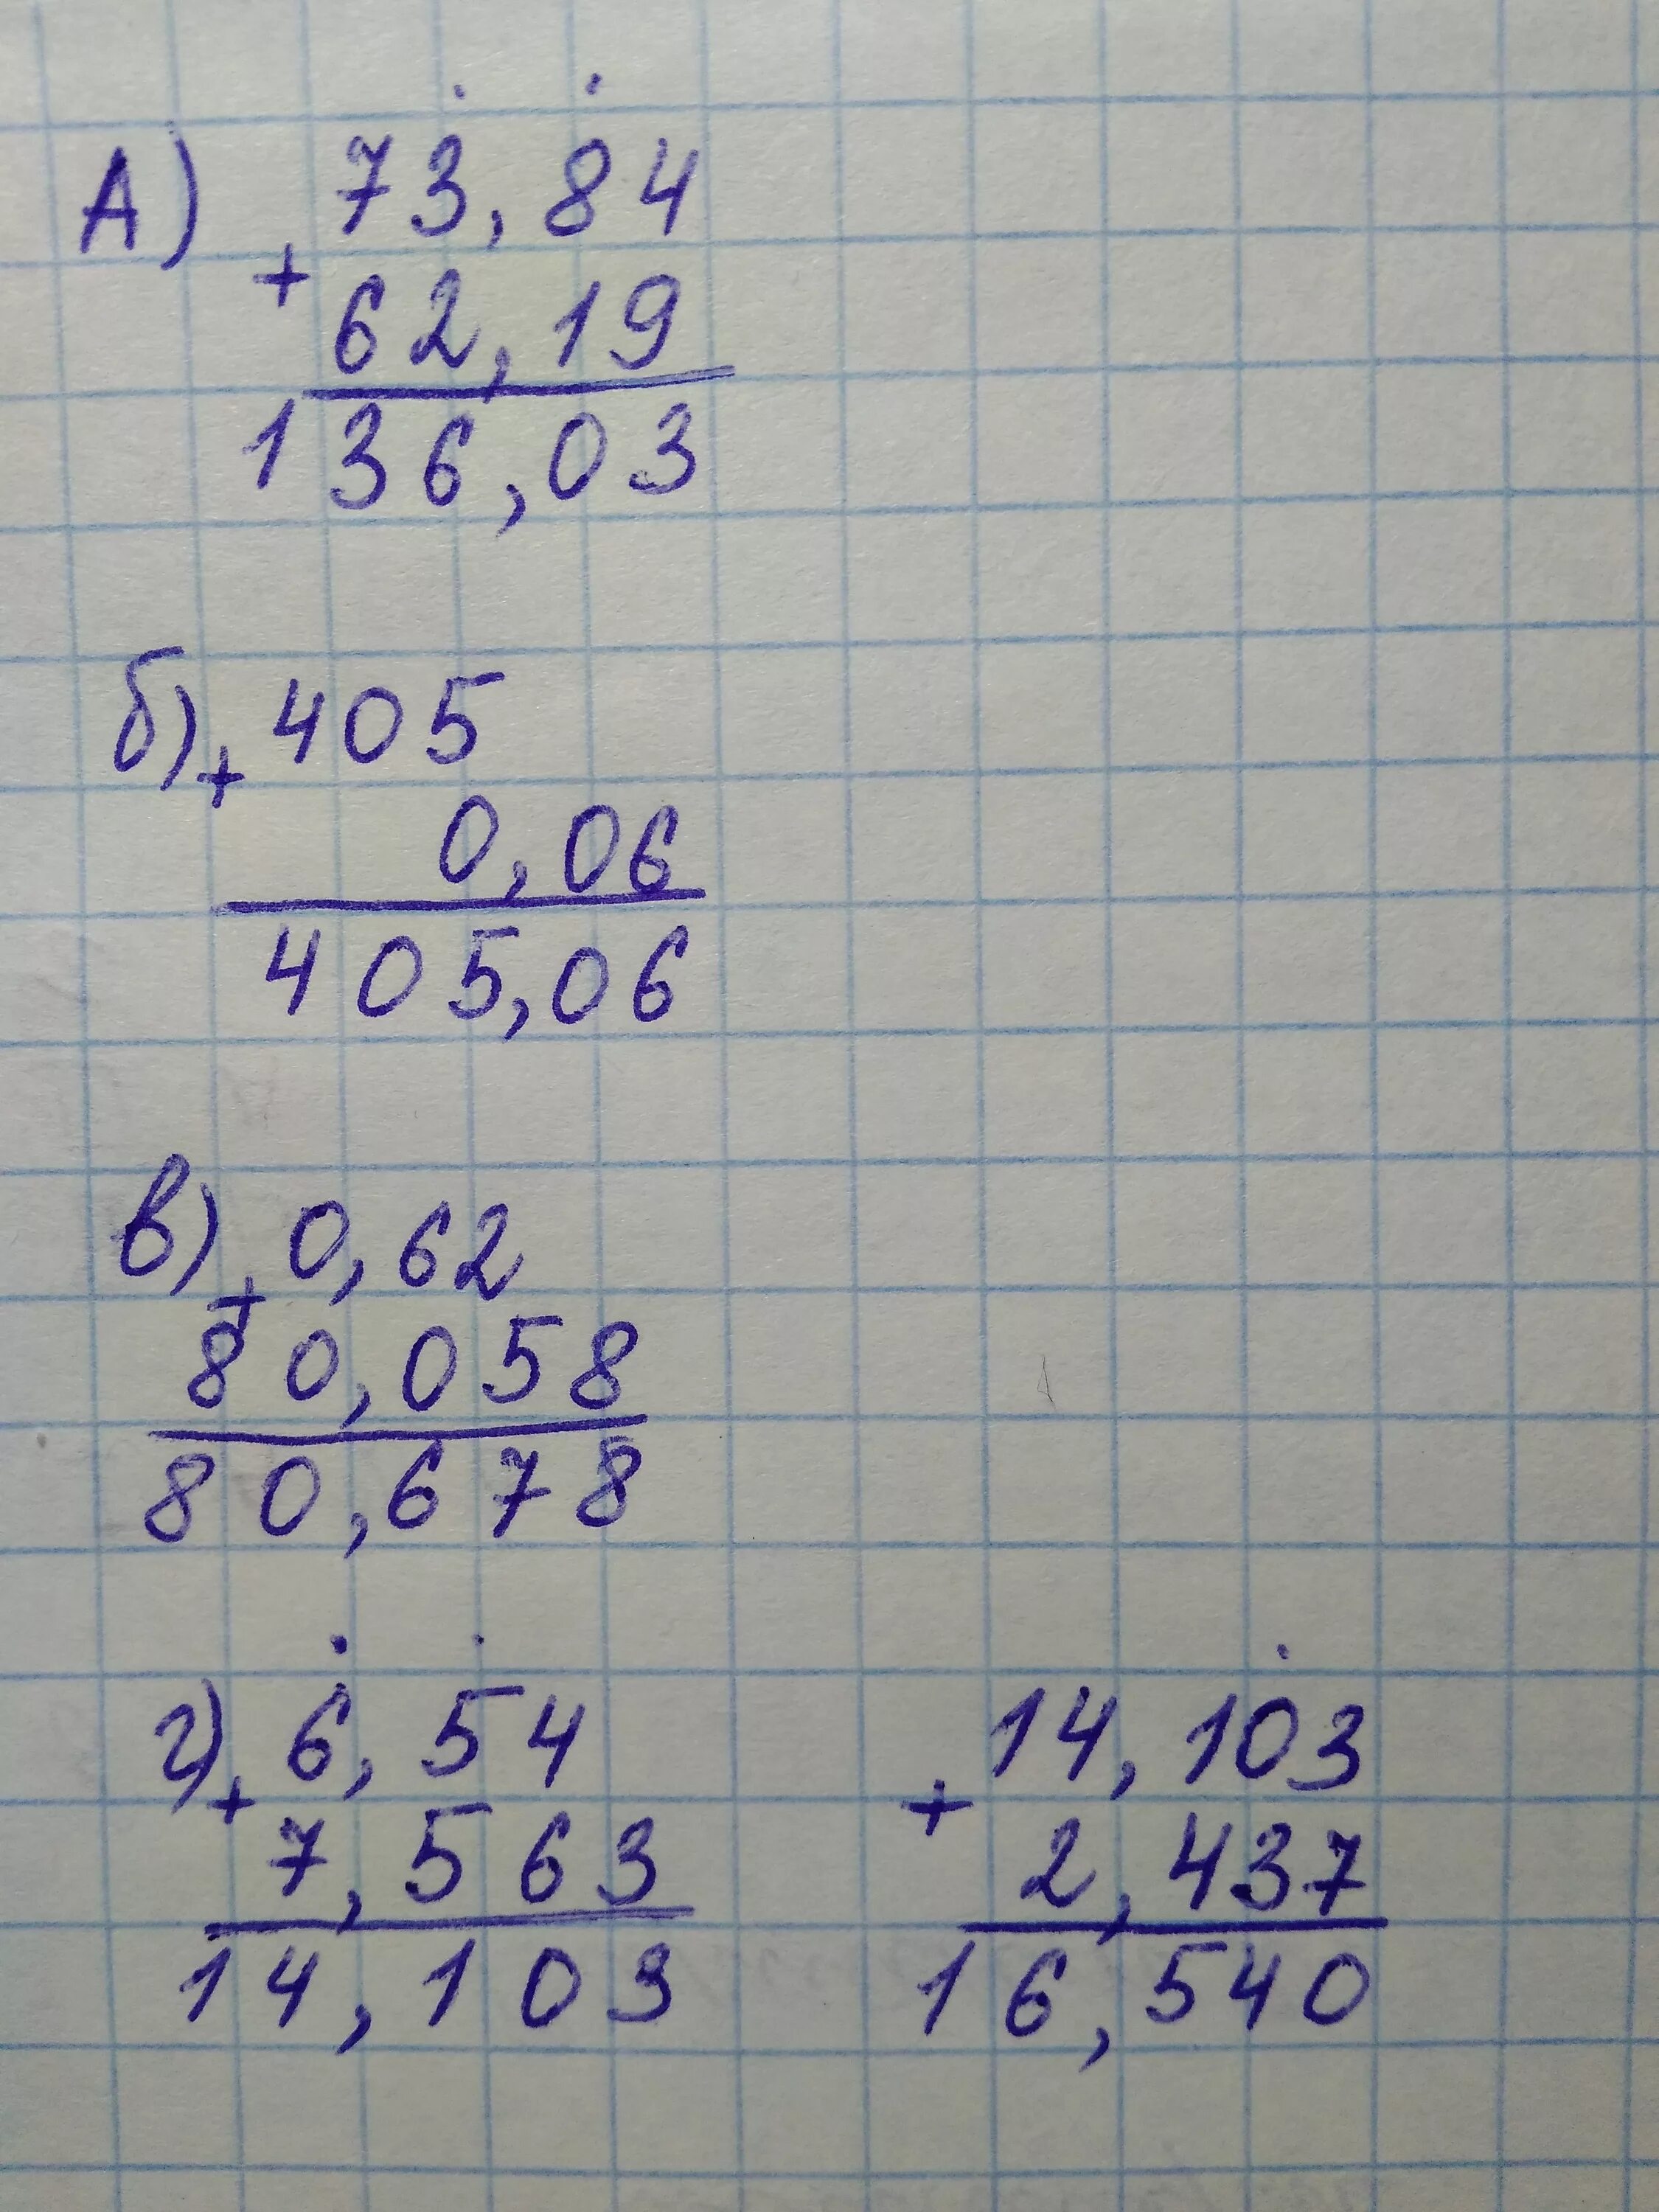 А) 73,84
+
62,19
136,03
б) 405
+
0,06
405,06
в) 0,62
+
80,058
80,678
г) 6,54
+
7,563
14,103
14,103
+
2,437
16,540